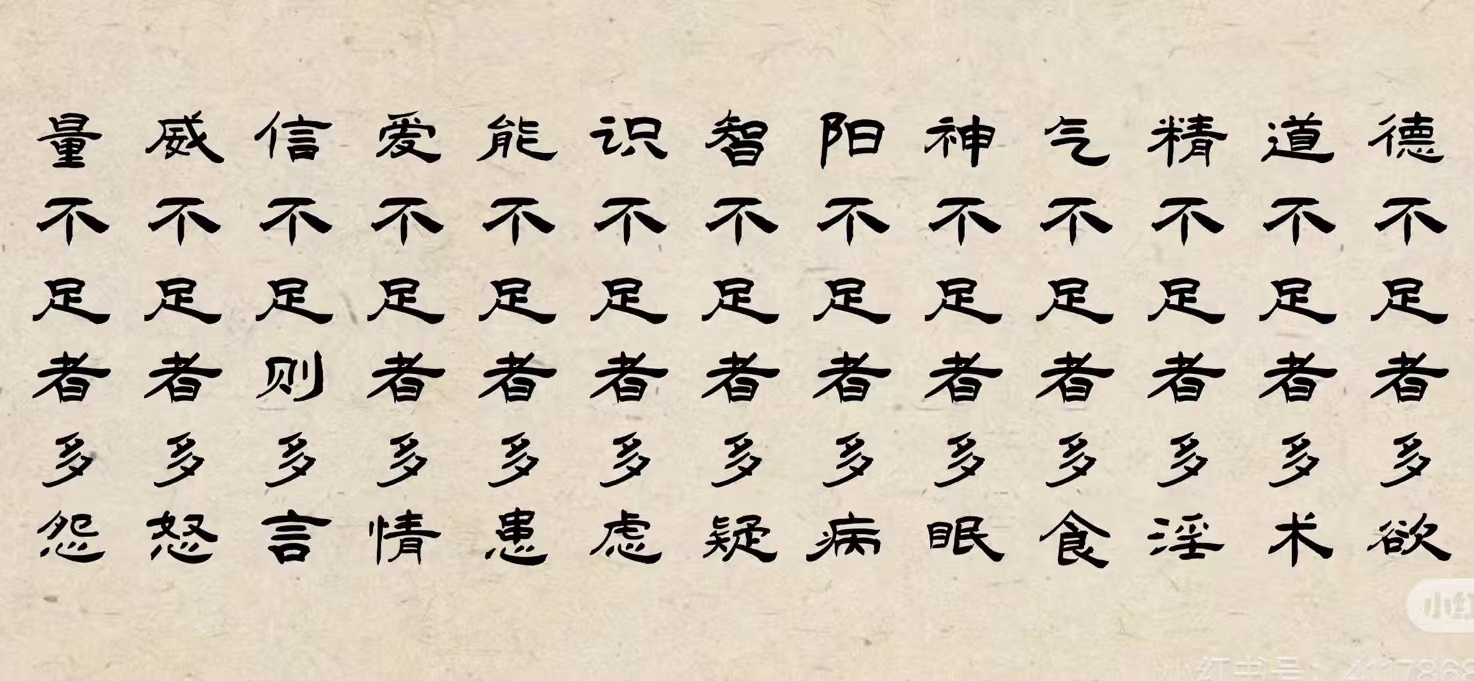 德不足者多欲
道不足者多术
精不足者多淫
气不足者多食
神不足者多眠
阳不足者多病
智不足者多疑
识不足者多虑
能不足者多患
爱不足者多情
信不足则多言
威不足者多怒
量不足者多怨